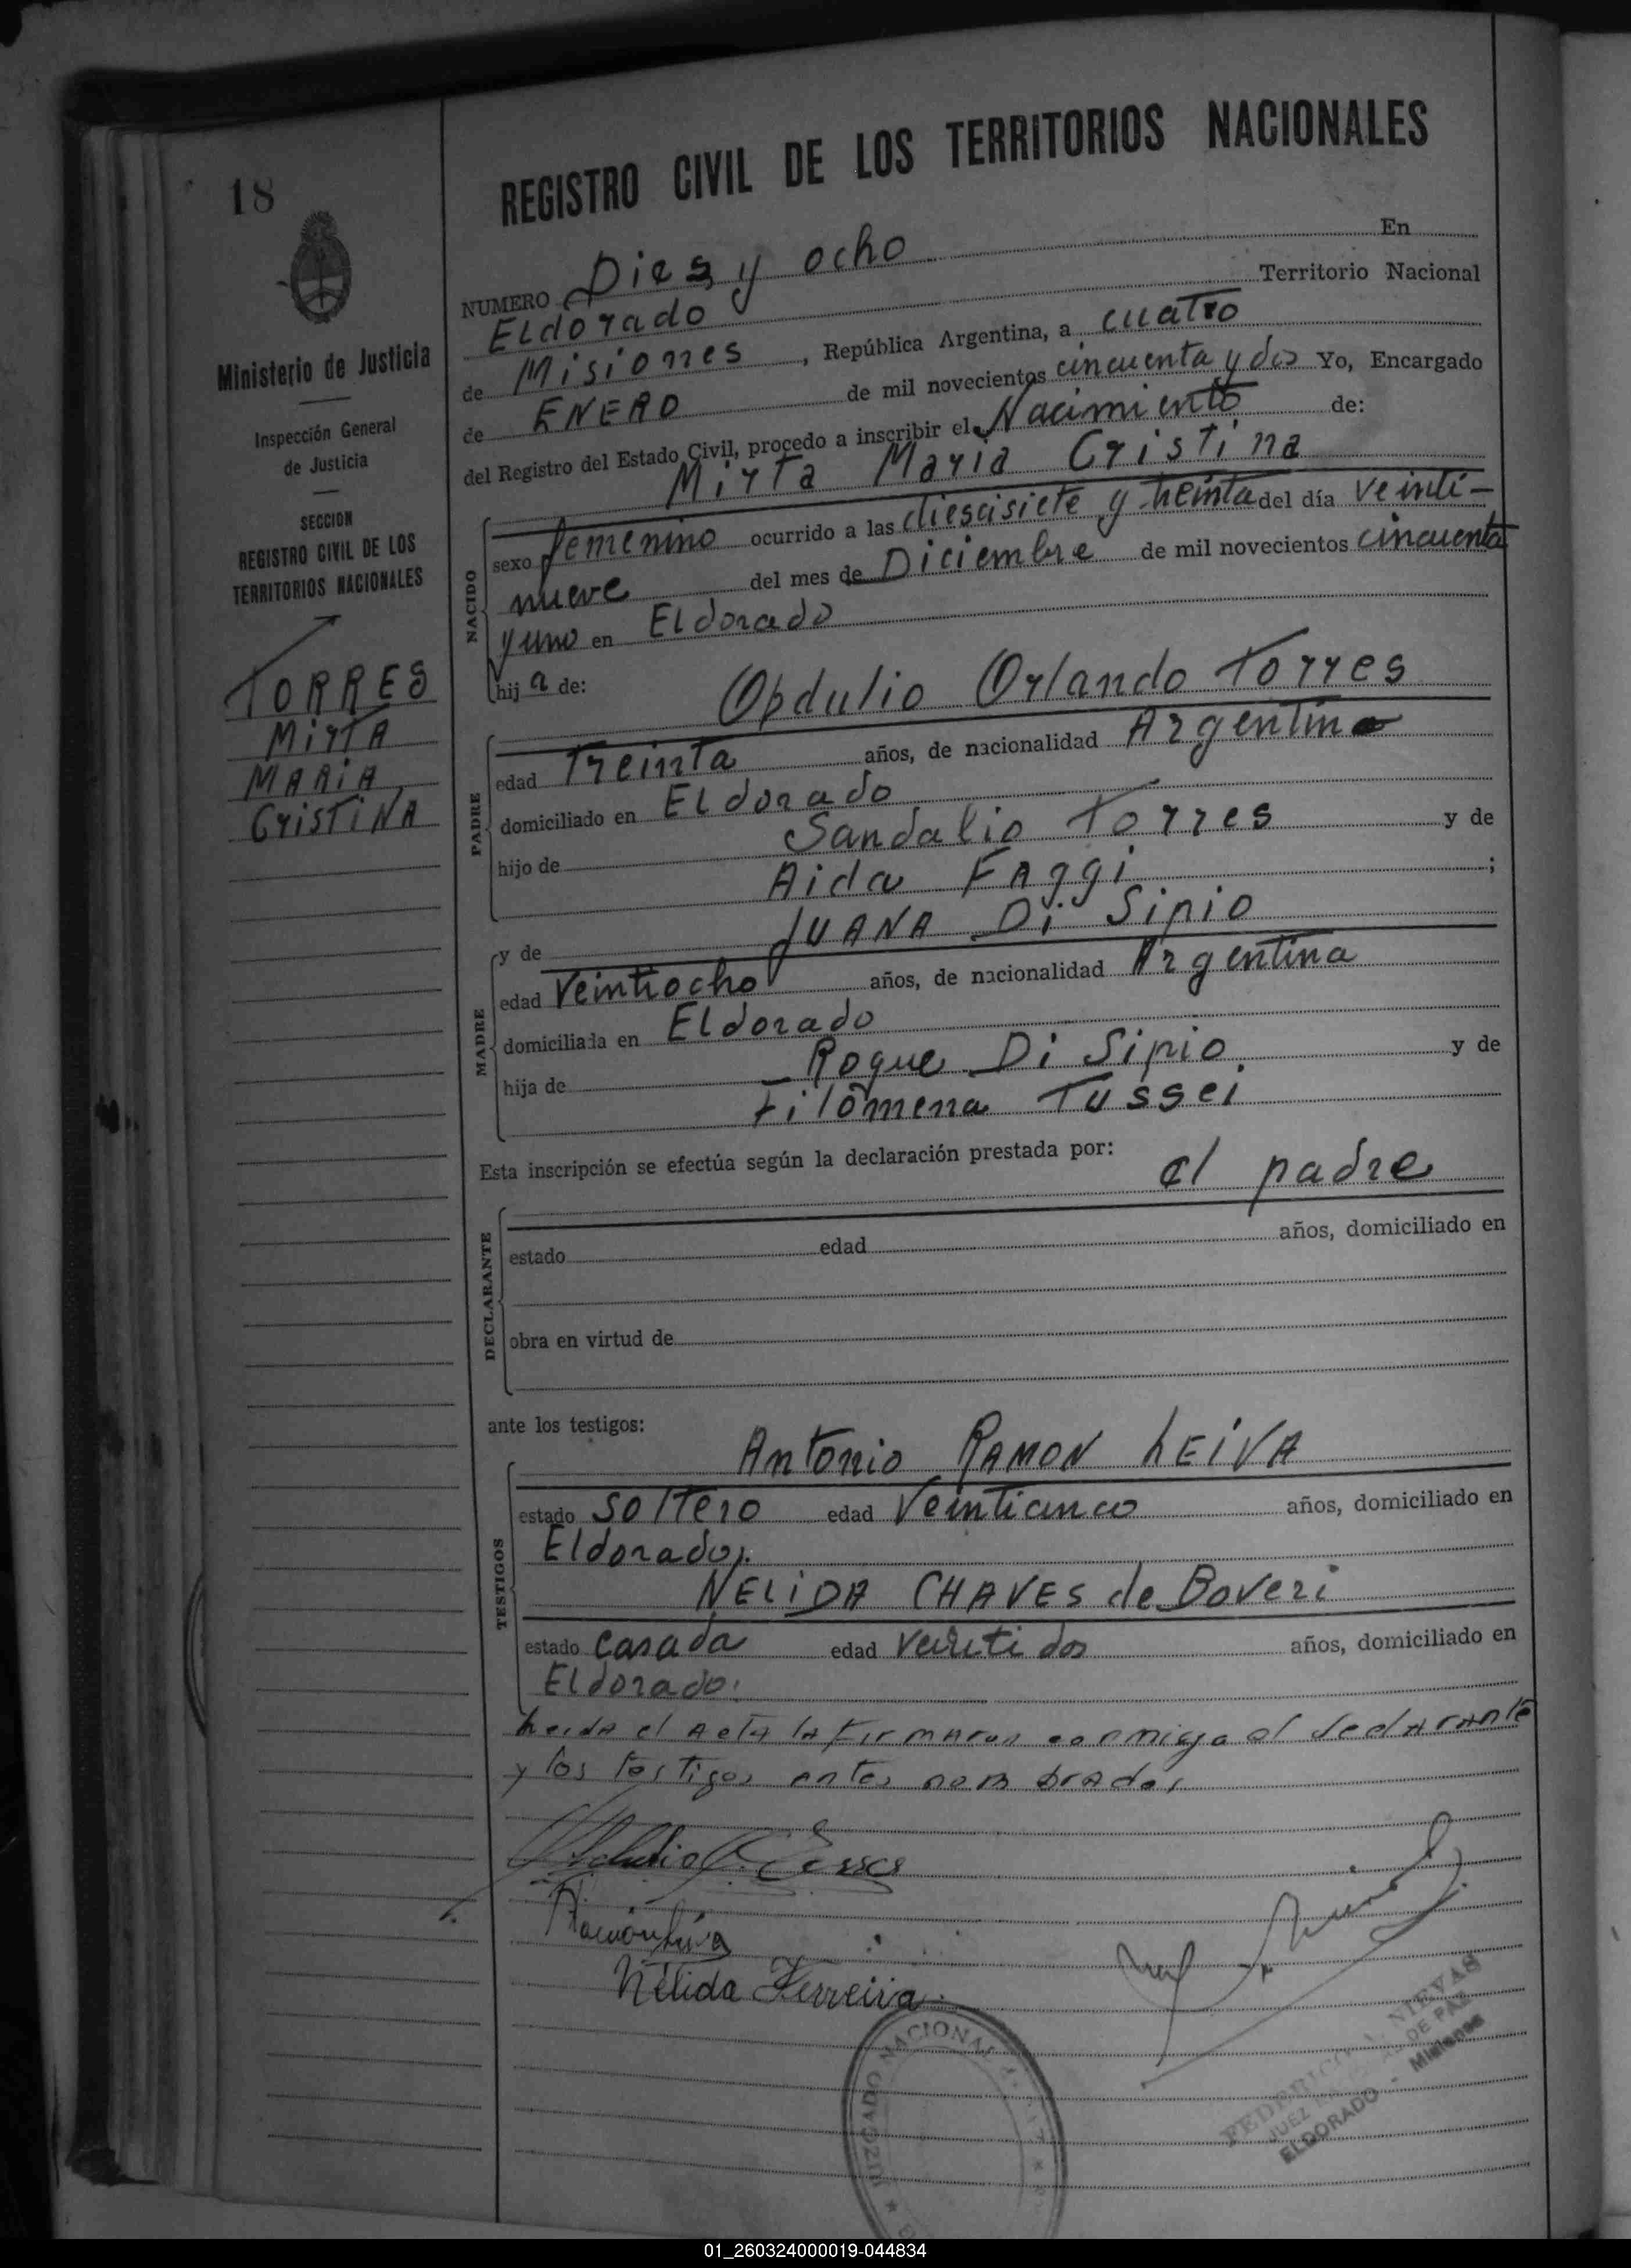 18
Ministerio de Justicia
Inspección General
de Justicia
SECCION
REGISTRO CIVIL DE LOS
TERRITORIOS NACIONALES
TORRES
MirTA
MARiA
CrisTiNA
REGISTRO CIVIL DE LOS TERRITORIOS NACIONALES
NUMERO Dies y ocho En
Eldorado Territorio Nacional
de Misiones, República Argentina, a cuatro
de ENERO de mil novecientos cincuenta y dos Yo, Encargado
del Registro del Estado Civil, procedo a inscribir el Nacimiento de:
Mirta Maria Cristina
NACIDO
sexo femenino ocurrido a las diescisiete y treinta del día veinti-
nueve del mes de Diciembre de mil novecientos cincuenta
y uno en Eldorado
hija de:
PADRE
Opdulio Orlando Torres
edad Treinta años, de nacionalidad Argentino
domiciliado en Eldorado
hijo de Sandalio Torres y de
Aida FAggi;
MADRE
y de JUANA Di Sipio
edad Veintiocho años, de nacionalidad Argentina
domiciliada en Eldorado
hija de Roque Di Sipio y de
Filomena Tussei
Esta inscripción se efectúa según la declaración prestada por:
el padre
DECLARANTE
estado edad años, domiciliado en
obra en virtud de
ante los testigos:
TESTIGOS
Antonio RAMON LEIVA
estado solTero edad Veinticinco años, domiciliado en
Eldorado.
NELiDA CHAVES de Boveri
estado casada edad veinti dos años, domiciliado en
Eldorado.
Leida el Acta la firmaron conmigo el declarante
y los testigos antes nombrados
Ramón Leiva
Nélida Ferreira
JUZGADO NACIONAL
FEDERICO NIEVAS
JUEZ DE PAZ
ELDORADO - Misiones
01_260324000019-044834